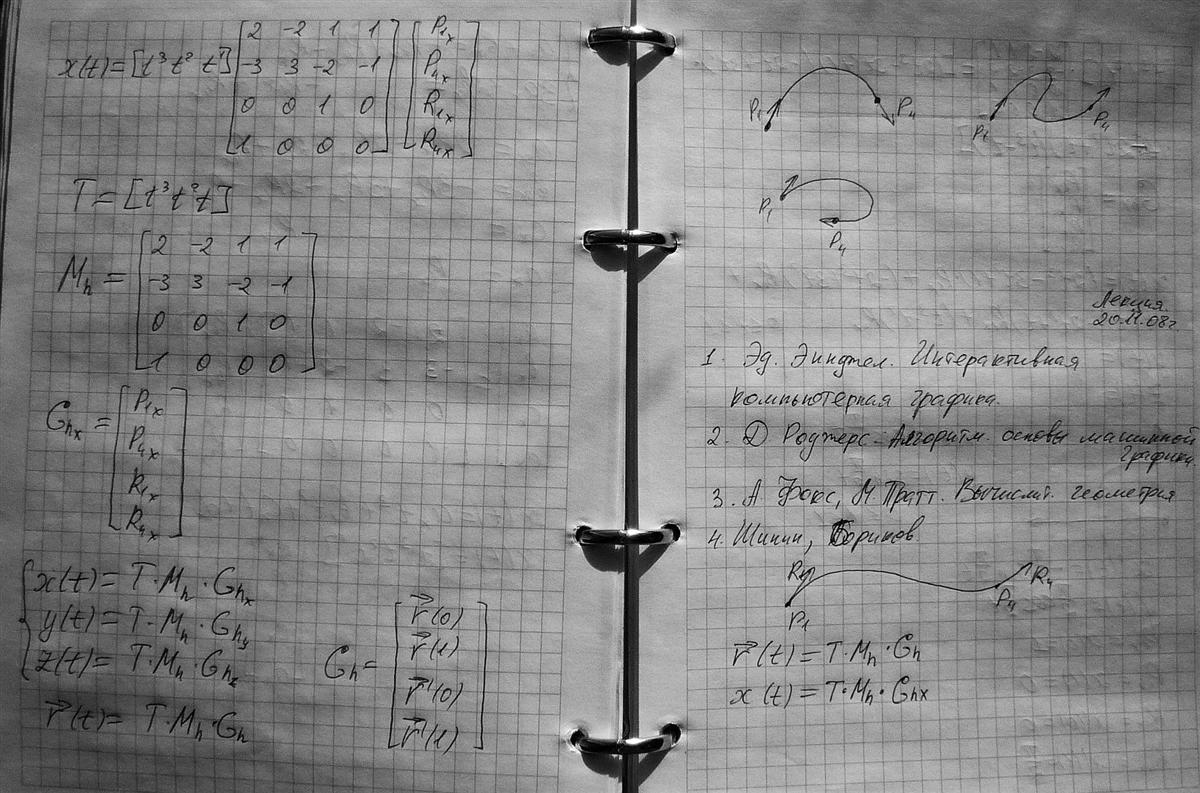 x(t) = [t³ t² t 1] [2 -2 1 1] [P₁ₓ]
[-3 3 -2 -1] [P₄ₓ]
[0 0 1 0] [R₁ₓ]
[1 0 0 0] [R₄ₓ]
T = [t³ t² t]
Mₕ = [2 -2 1 1]
[-3 3 -2 -1]
[0 0 1 0]
[1 0 0 0]
Gₕₓ = [P₁ₓ]
[P₄ₓ]
[R₁ₓ]
[R₄ₓ]
{x(t) = T·Mₕ·Gₕₓ
y(t) = T·Mₕ·Gₕᵧ
z(t) = T·Mₕ·Gₕz
r⃗(t) = T·Mₕ·Gₕ
Gₕ = [r⃗(0)]
[r⃗(1)]
[r⃗'(0)]
[r⃗'(1)]
P₁ P₄ P₁ P₄
P₁ P₄
Лекция
20.11.08г.
1. Эд. Эинджел. Интерактивная
компьютерная графика.
2. Д Роджерс - Алгоритм. основы машинной
графики
3. А Фокс, М. Пратт. Вычислит. геометрия
4. Шикин, Бориков
R₁ R₄
P₁ P₄
r⃗(t) = T·Mₕ·Gₕ
x(t) = T·Mₕ·Gₕₓ